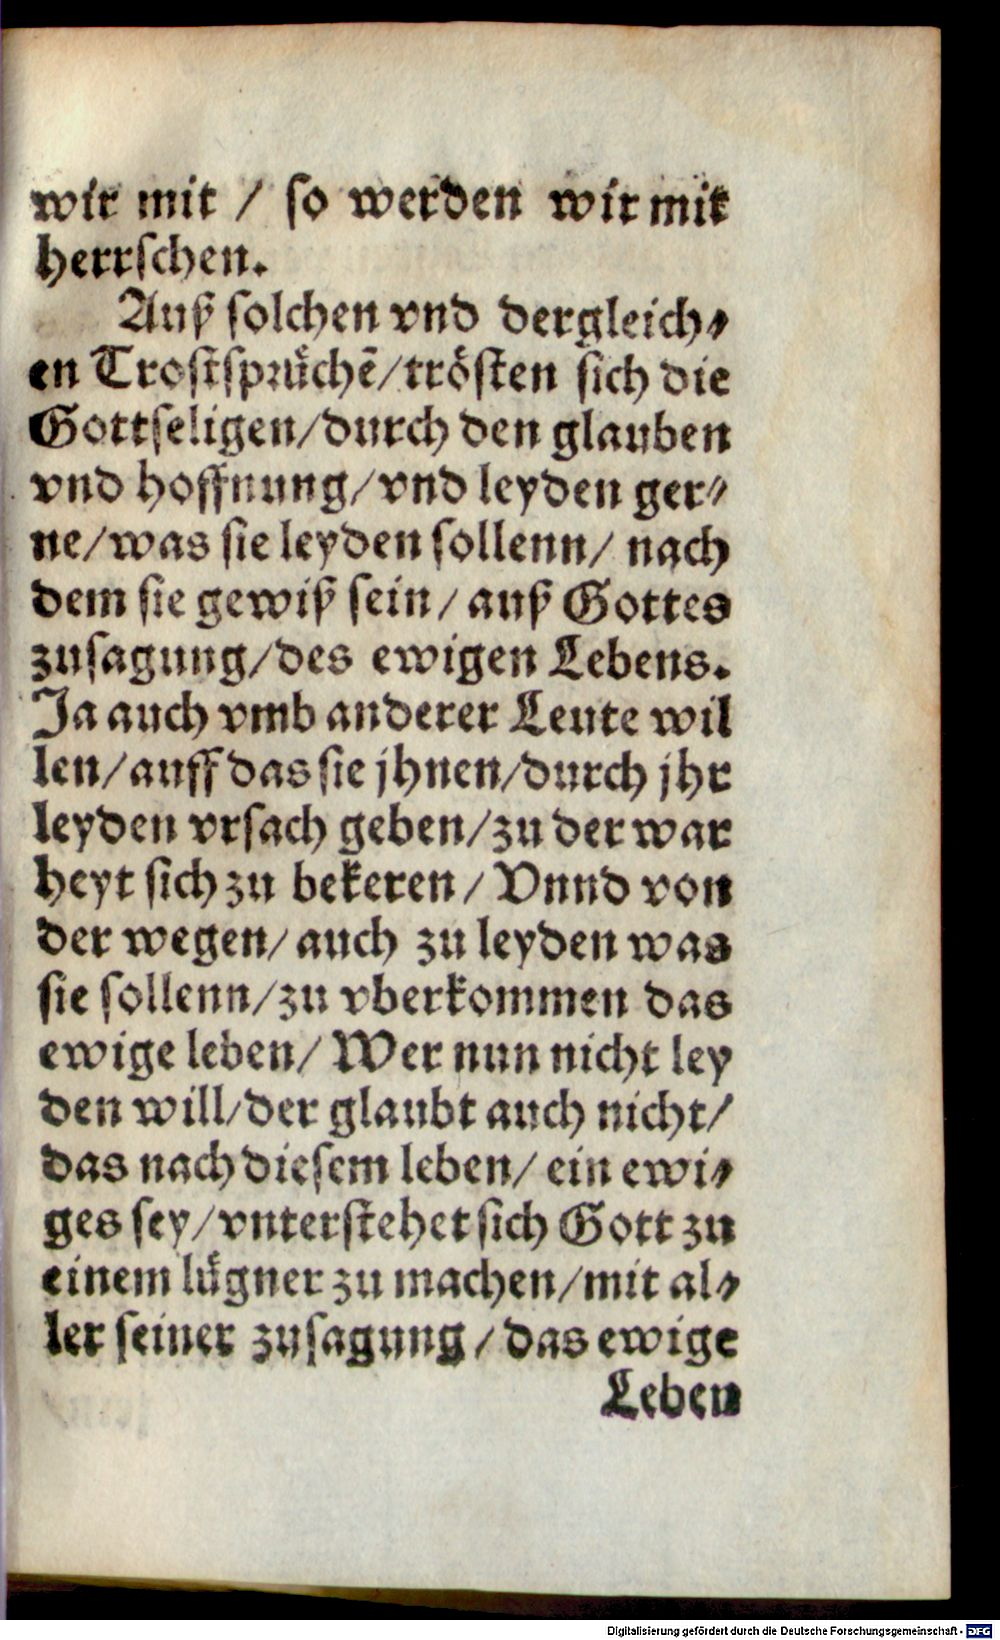 wir mit / so werden wir mit
herrschen.
Auß solchen vnd dergleich⸗
en Trostsprüchē/trösten sich die
Gottseligen/durch den glauben
vnd hoffnung/vnd leyden ger⸗
ne/was sie leyden sollenn/ nach
dem sie gewiß sein/ auß Gottes
zusagung/des ewigen Lebens.
Ja auch vmb anderer Leute wil
len/auff das sie jhnen/durch jhr
leyden vrsach geben/zu der war
heyt sich zu bekeren/ Vnnd von
der wegen/ auch zu leyden was
sie sollenn/zu vberkommen das
ewige leben/ Wer nun nicht ley
den will/der glaubt auch nicht/
das nach diesem leben/ ein ewi⸗
ges sey/vnterstehet sich Gott zu
einem lügner zu machen/mit al⸗
ler seiner zusagung/das ewige
Leben
Digitalisierung gefördert durch die Deutsche Forschungsgemeinschaft - DFG